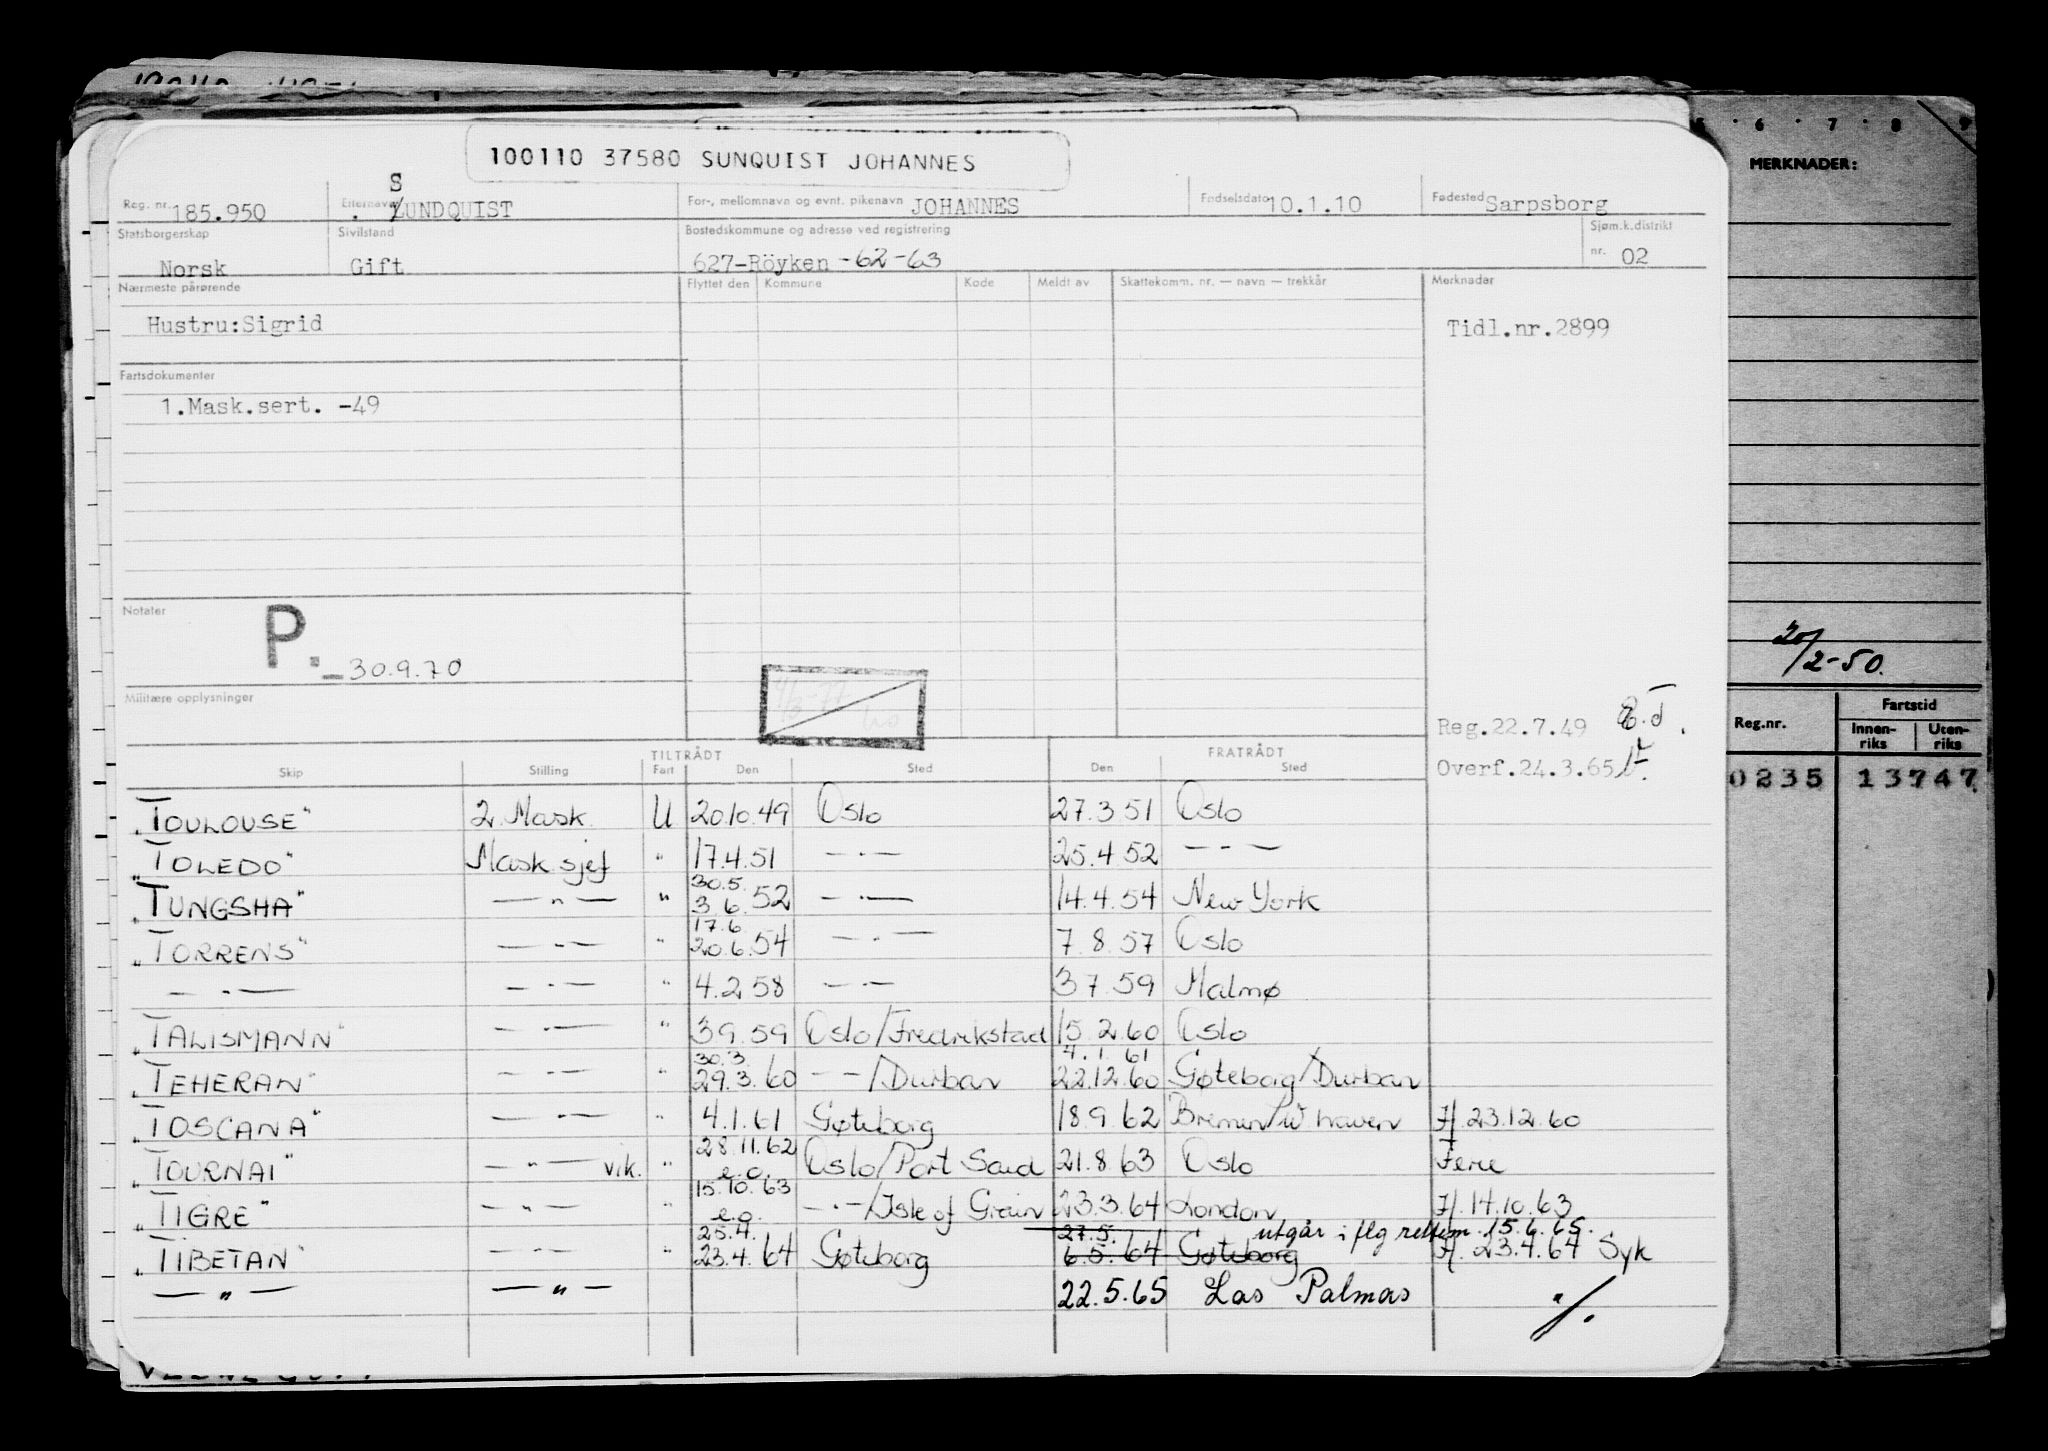 100110 37580 SUNQUIST JOHANNES
S
Reg. nr. 185.950 Etternavn . ZUNDQUIST For-, mellomnavn og evnt. pikenavn JOHANNES Fødselsdato 10.1.10 Fødested Sarpsborg
Statsborgerskap Sivilstand Bostedskommune og adresse ved registrering Sjøm.k.distrikt
Norsk Gift 627-Röyken -62-63 nr. 02
Nærmeste pårørende Flyttet den Kommune Kode Meldt av Skattekomm. nr. — navn — trekkår Merknader
Hustru:Sigrid Tidl.nr.2899
Fartsdokumenter
1.Mask.sert. -49
Notater
P.
-30.9.70
Militære opplysninger
Reg.22.7.49
Overf.24.3.65
TILTRÅDT FRATRÅDT
Skip Stilling Fart Den Sted Den Sted
"TOULOUSE" 2. Mask. U 20.10.49 Oslo 27.3 51 Oslo
"TOLEDO" Mask sjef " 17.4.51 — . — 25.4 52 — " —
30.5.
"TUNGSHA" — " — " 3.6.52 — . — 14.4.54 New York
17.6.
"TORRENS" — " — " 20.6.54 — . — 7.8.57 Oslo
— . — — . — " 4.2.58 — . — 3 7.59 Malmø
"TALISMANN" — . — " 3.9.59 Oslo/Fredrikstad 15.2.60 Oslo
30.3. 4.1.61
"TEHERAN" — . — " 29.3.60 — — /Durban 22.12.60 Gøteborg/Durban
"TOSCANA" — " — " 4.1.61 Gøteborg 18.9.62 Bremen/W haven If 23.12.60
28.11.62
"TOURNAI" — " — vik. " e.o. Oslo/Port Said 21.8.63 Oslo Ferie
15.10.63
"TIGRE" — " — " e.o. — . — /Isle of Grain 23.3.64 London If 14.10.63
25.4. 27.5. utgår i flg rettem. 15.6.65.
"TIBETAN" — " — " 23.4.64 Gøteborg 6.5.64 Gøteborg If. 23.4.64 Syk
— " — — " — 22.5.65 Las Palmas "/.
5 6 7 8 9
MERKNADER:
20/2-50.
Reg.nr. Fartstid
Innenriks Utenriks
0235 13747